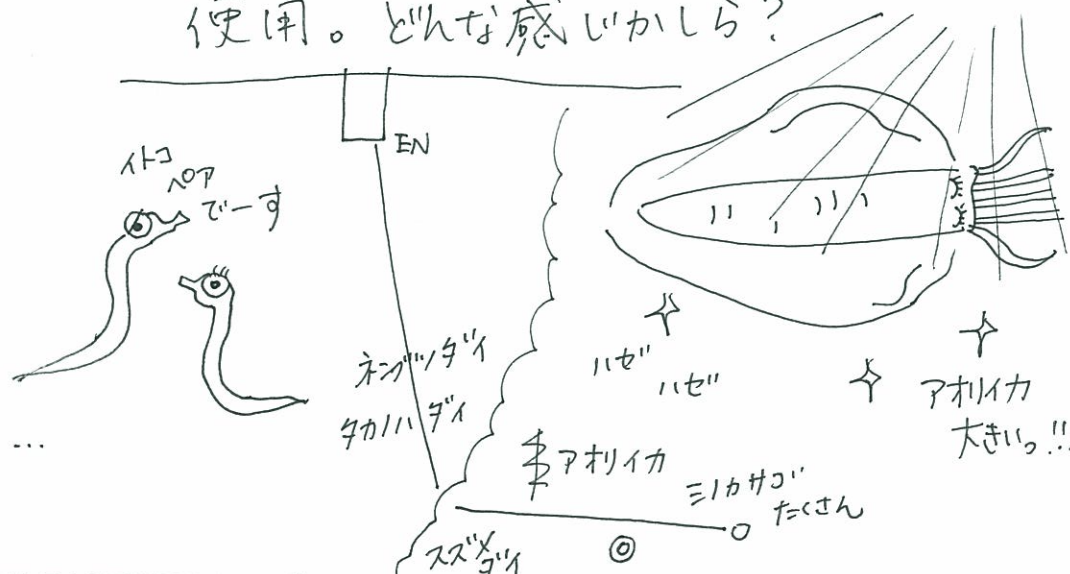 使用。どんな感じかしら?
EN
イトコ
ペア
でーす
ネンブツダイ
タカノハダイ
ハゼ
ハゼ
アオリイカ
大きいっ!!
アオリイカ
ミノカサゴ
たくさん
スズメ
ダイ
...